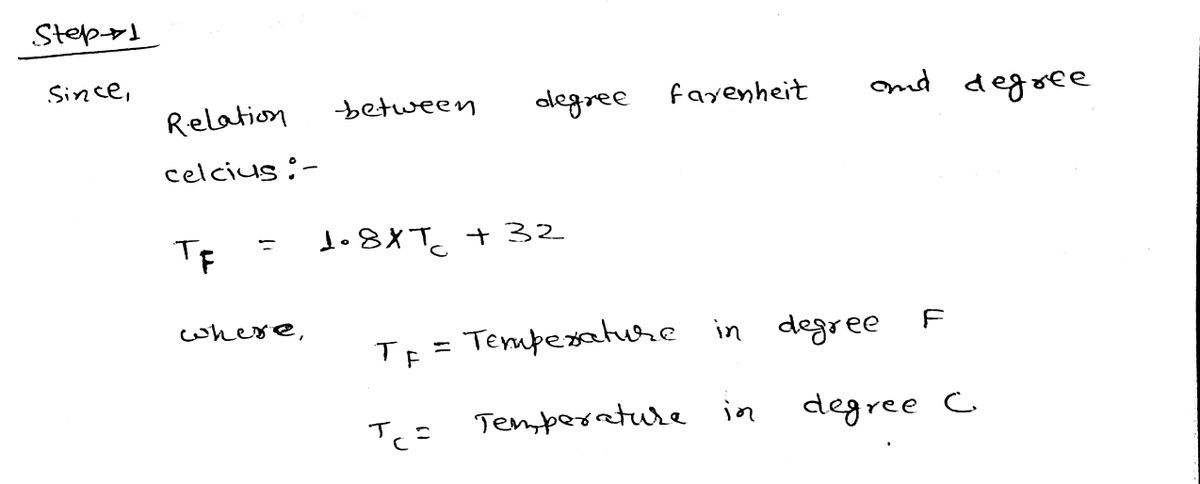 Step→1
Since,
Relation between degree farenheit and degree
celcius:-
T_F = 1.8×T_C + 32
where,
T_F = Temperature in degree F
T_C = Temperature in degree C.